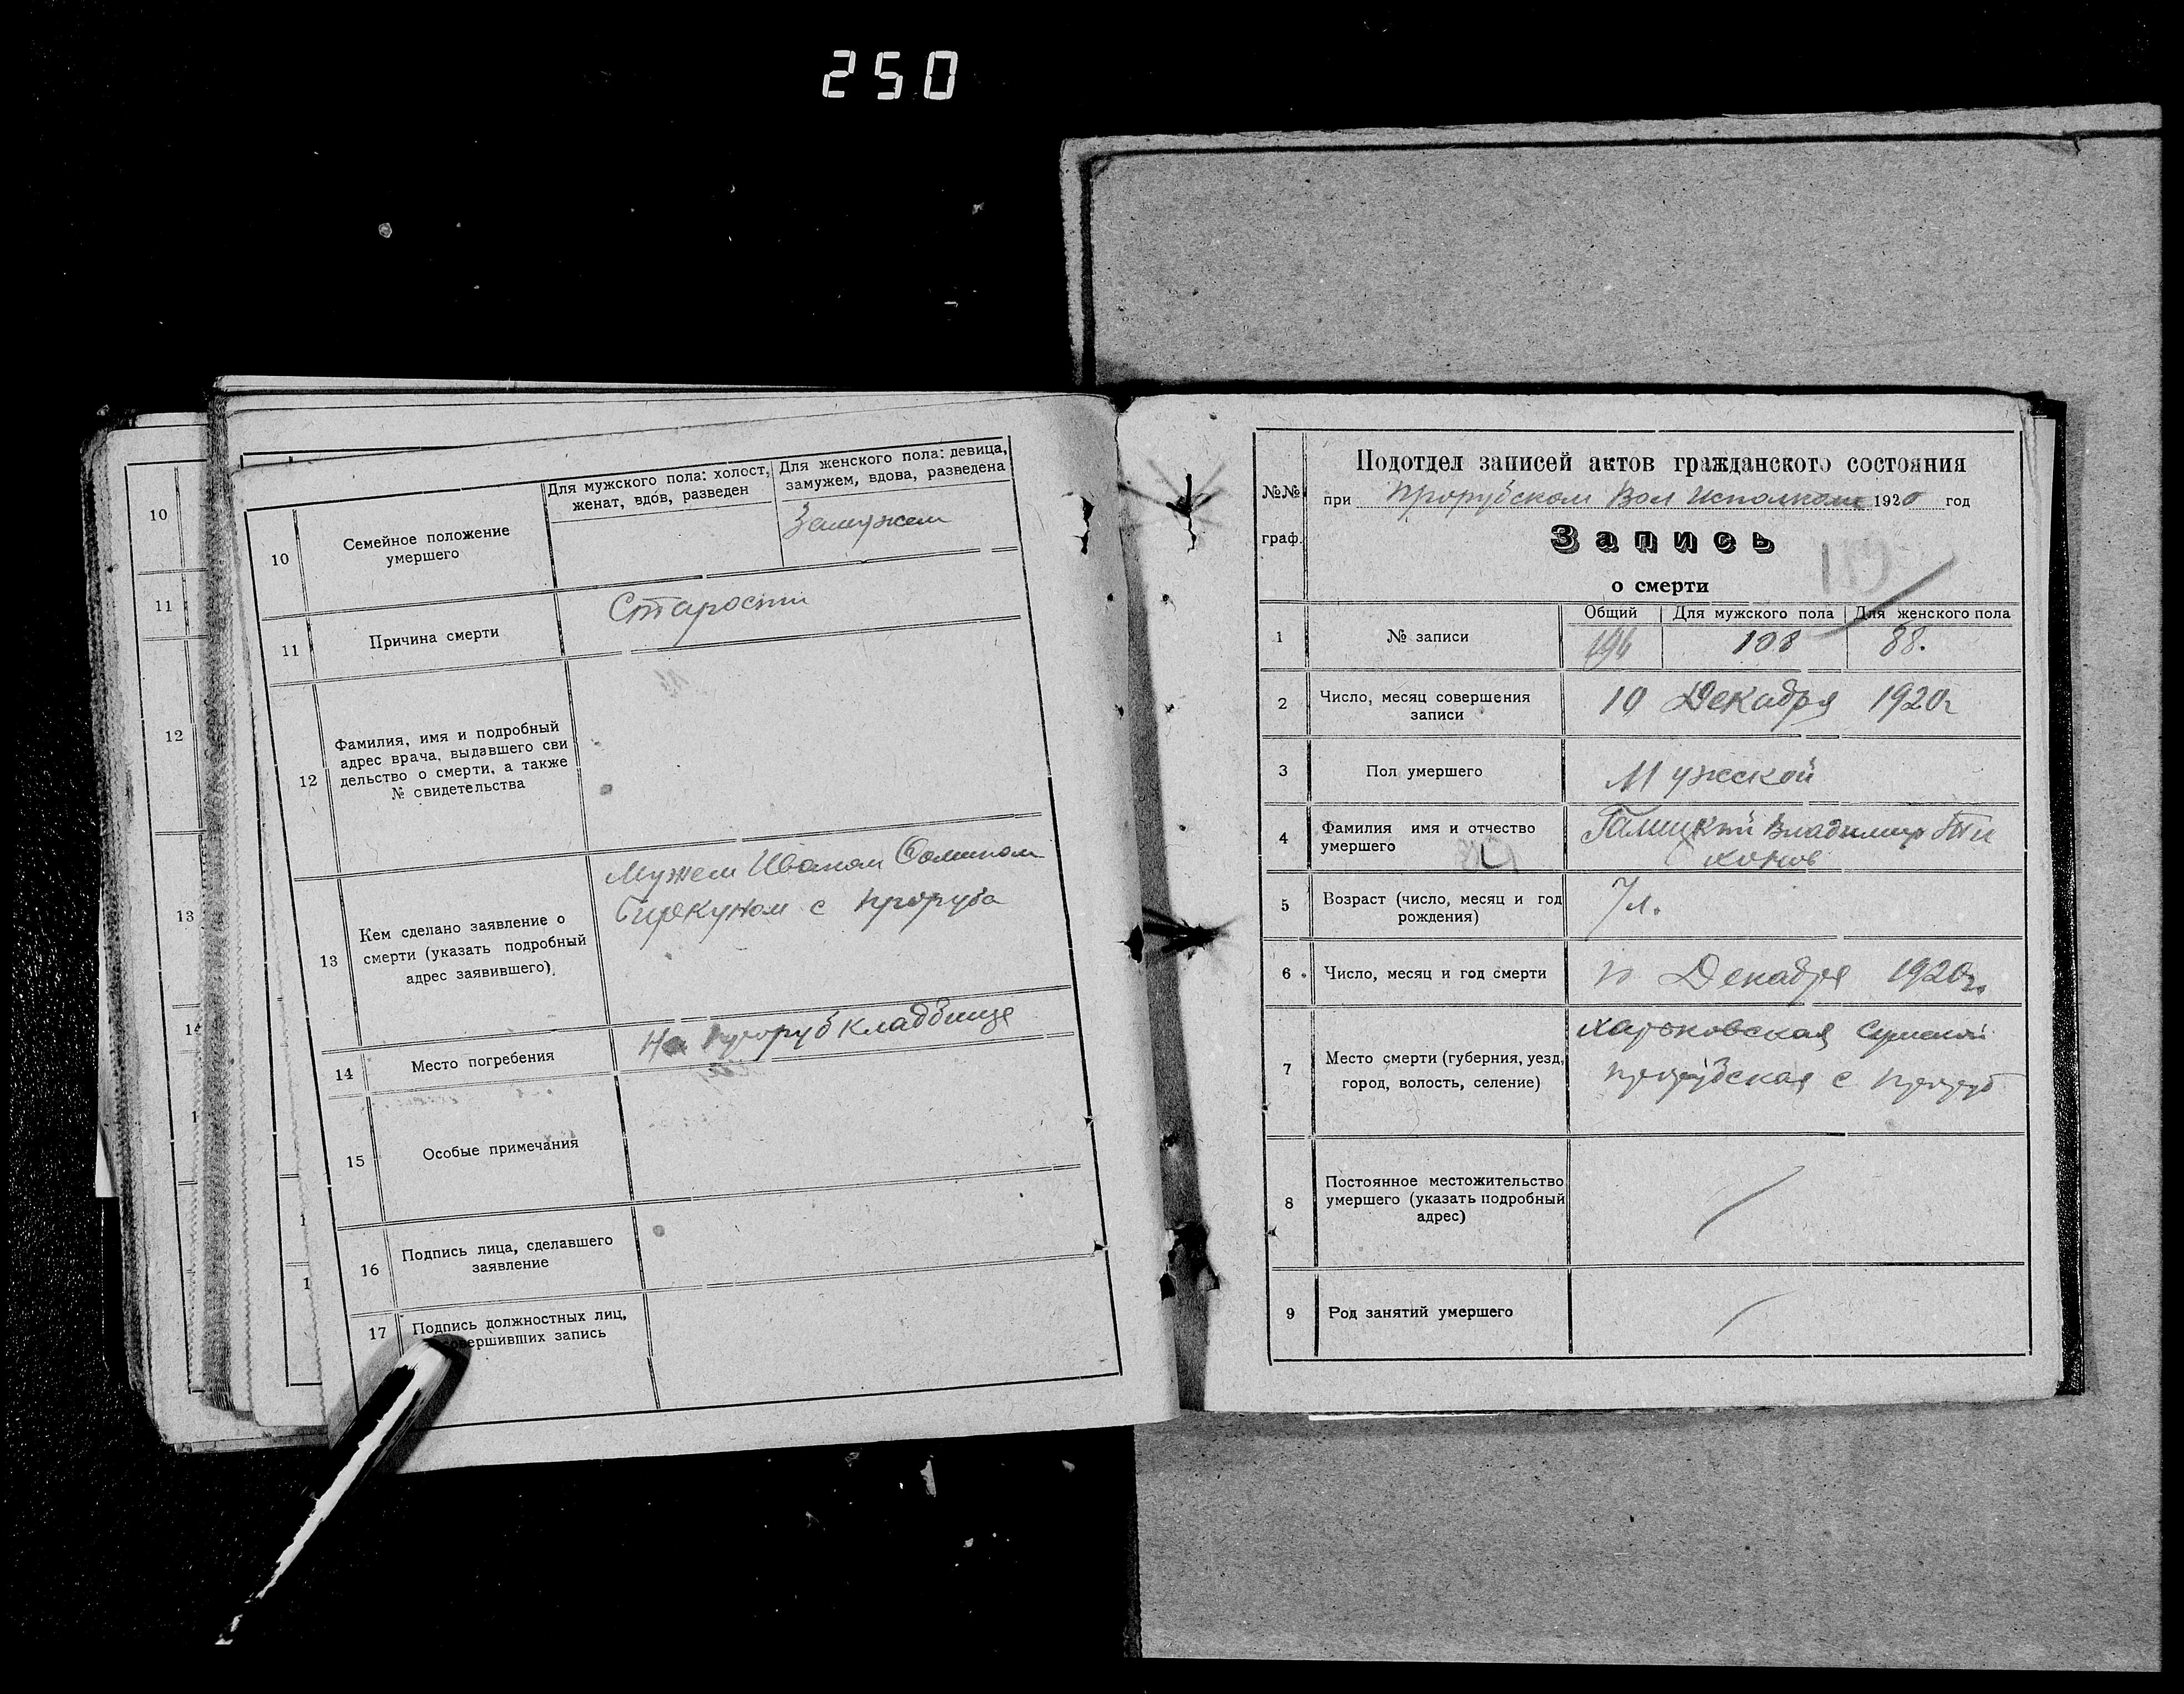 250
10
11
12
13
14
1
1
1
10
Семейное положение
умершего
Для мужского пола: холост,
женат, вдов, разведен
Для женского пола: девица,
замужем, вдова, разведена
Замужем
11
Причина смерти
Старости
12
Фамилия, имя и подробный
адрес врача, выдавшего сви
дельство о смерти, а также
№ свидетельства
13
Кем сделано заявление о
смерти (указать подробный
адрес заявившего).
Мужем Иваном
с Проруба
14
Место погребения
На Проруб кладбище
15
Особые примечания
16
Подпись лица, сделавшего
заявление
17
Подпись должностных лиц,
совершивших запись
№№
граф.
Подотдел записей актов гражданского состояния
при Прорубском Вол Исполкоме 1920 год
Запись
о смерти
1
№ записи
Общий
Для мужского пола
Для женского пола
196
108
88.
2
Число, месяц совершения
записи
10 Декабря 1920г
3
Пол умершего
Мужской
4
Фамилия имя и отчество
умершего
Галицкий Владимир Ти
хонов
5
Возраст (число, месяц и год
рождения)
7 л.
6
Число, месяц и год смерти
Декабря 1920г.
7
Место смерти (губерния, уезд,
город, волость, селение)
Харьковская Сумской
Прорубская с Проруб
8
Постоянное местожительство
умершего (указать подробный
адрес)
9
Род занятий умершего